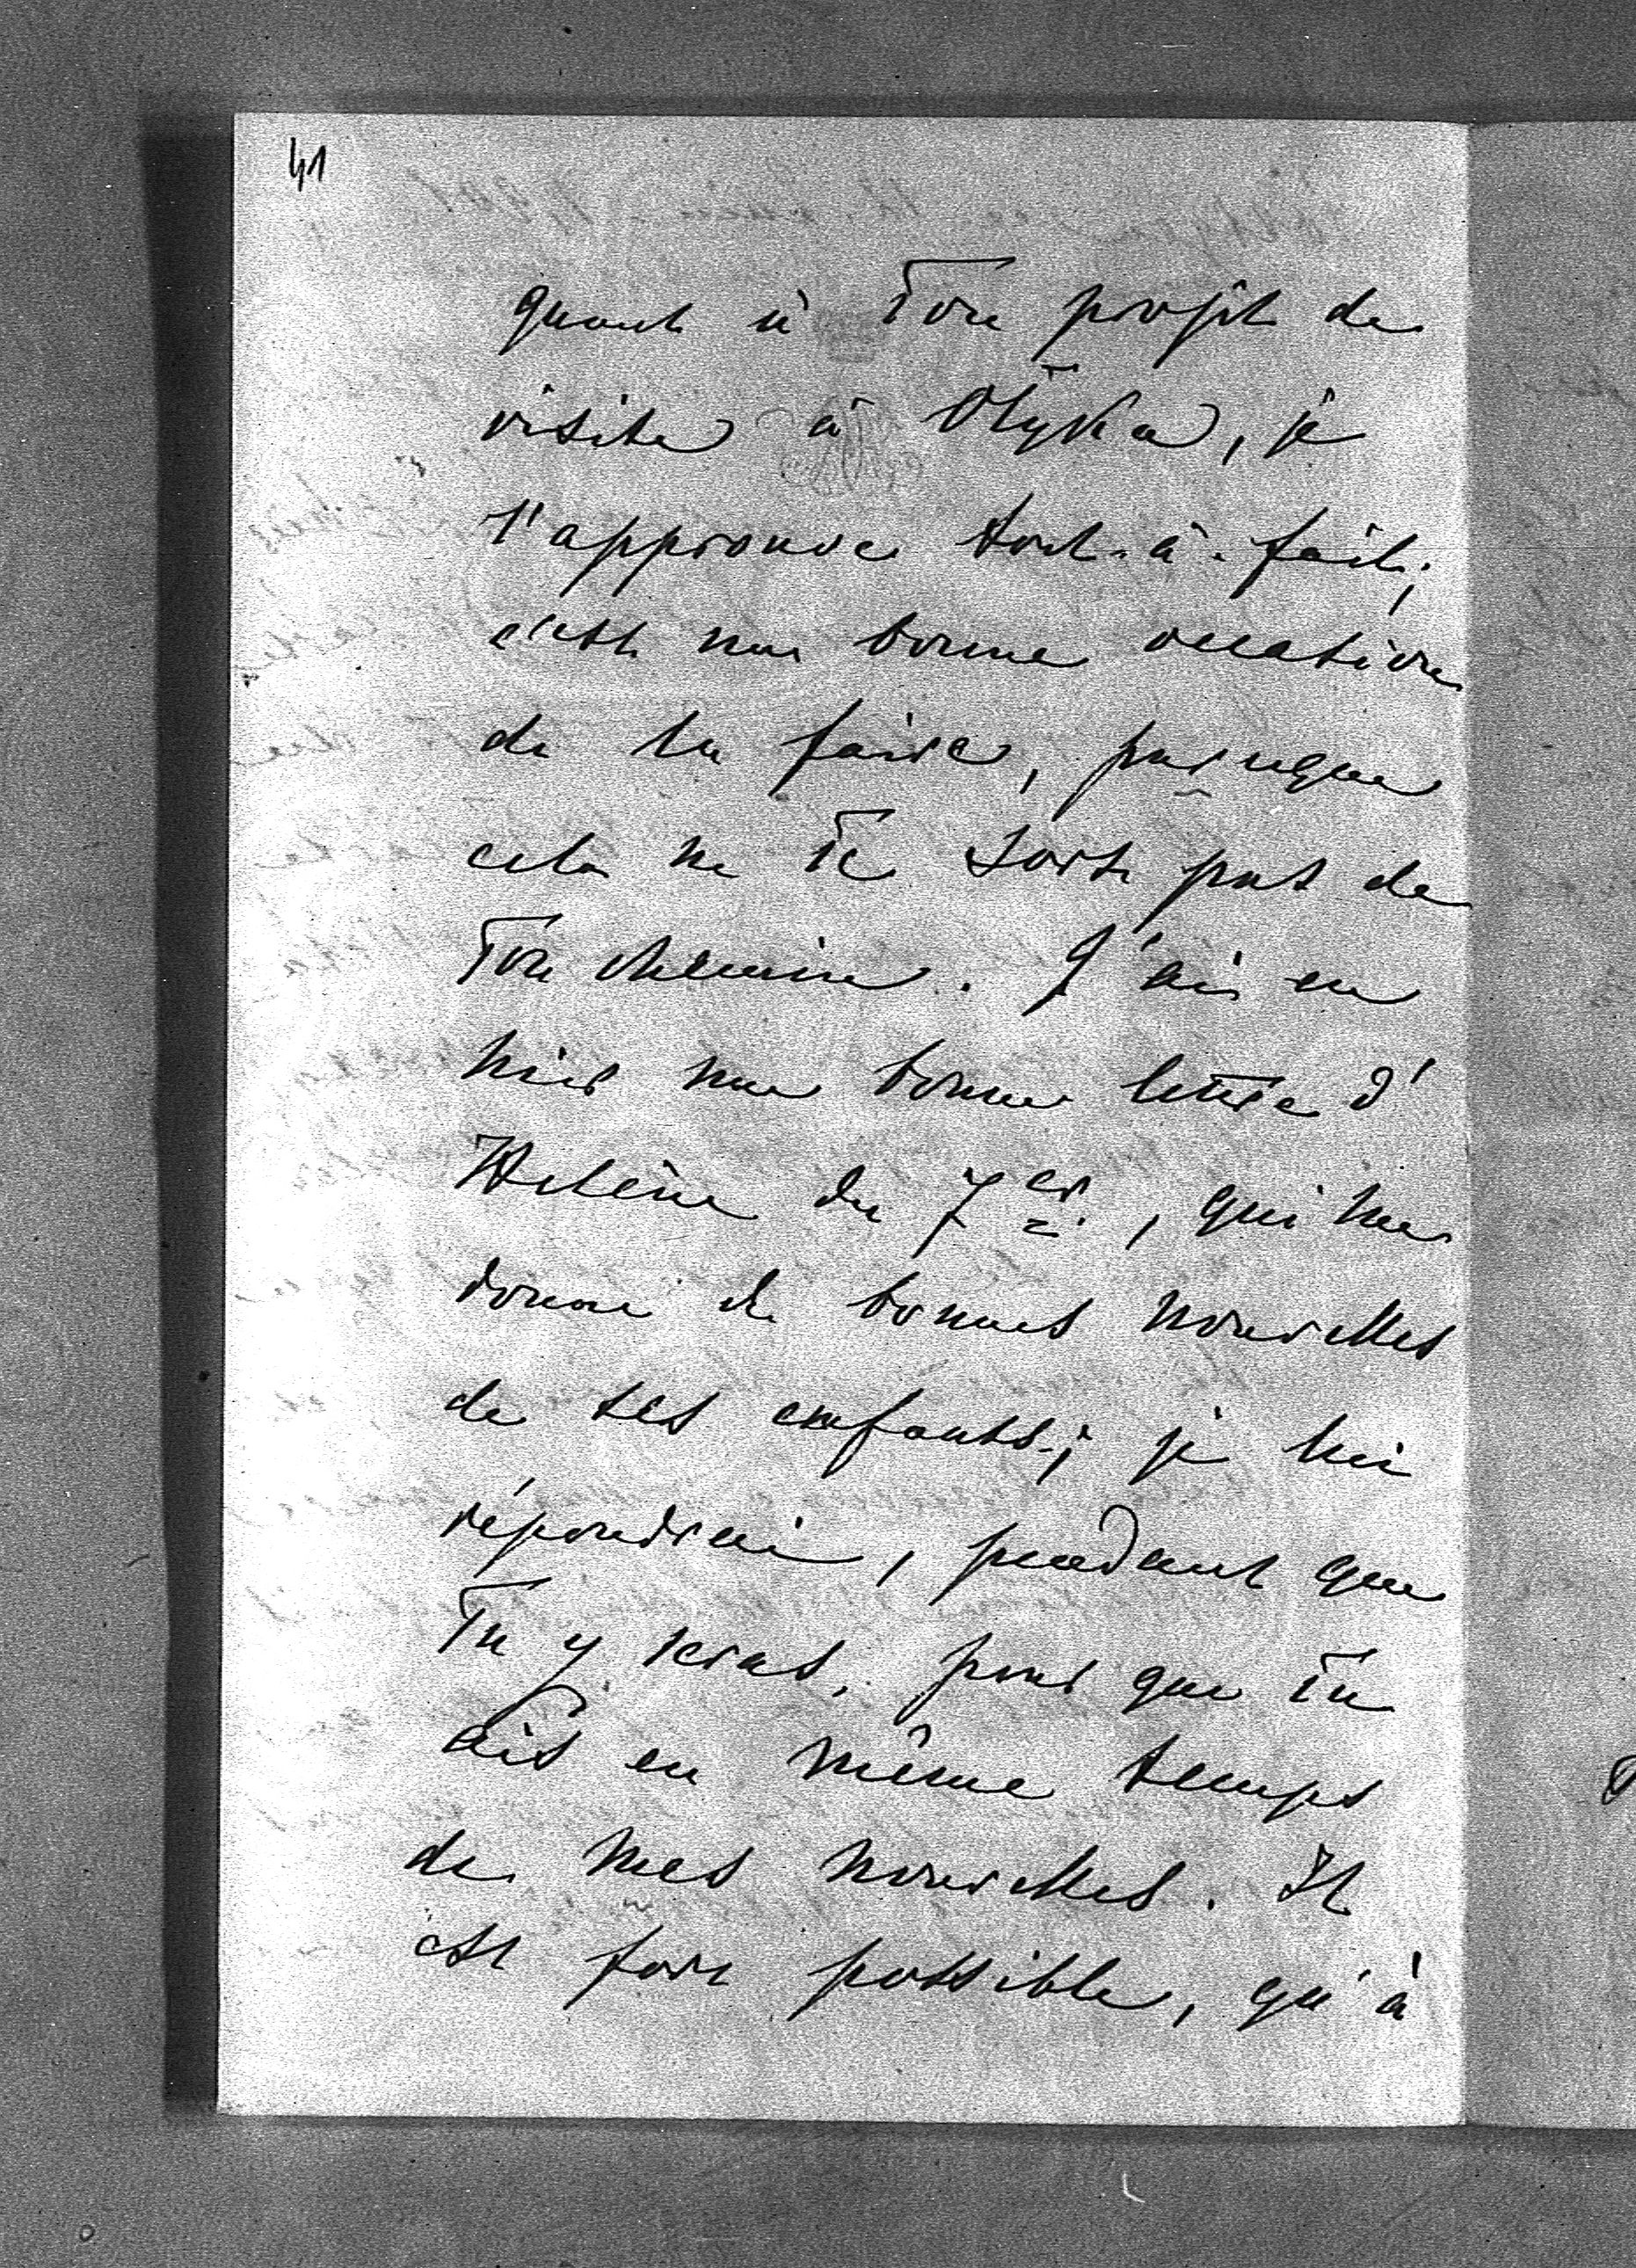 41
quant à Ton projet de
visite à Olÿka, je
l'approuve tout-à-fait;
c'est une bonne occasion
de la faire, puisque
cela ne Te sort pas de
Ton chemin. J'ai eu
hier une bonne lettre d'
Helène du 7 cr., qui me
donne de bonnes nouvelles
de ses enfants; je lui
répondrai, pendant que
Tu y seras, pour que Tu
ais en même temps
de mes nouvelles. Il
est fort possible, qu'à